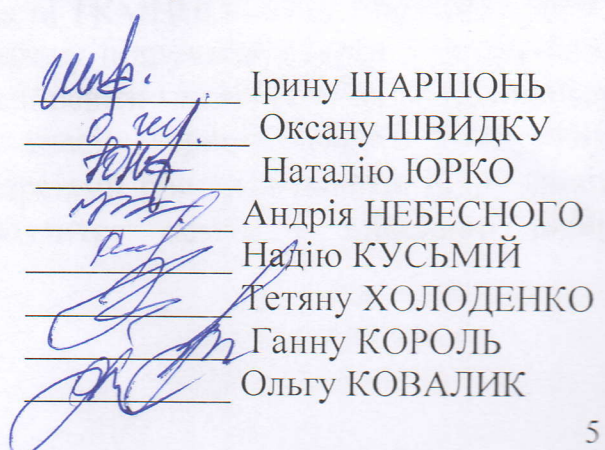 Ірину ШАРШОНЬ
Оксану ШВИДКУ
Наталію ЮРКО
Андрія НЕБЕСНОГО
Надію КУСЬМІЙ
Тетяну ХОЛОДЕНКО
Ганну КОРОЛЬ
Ольгу КОВАЛИК
5